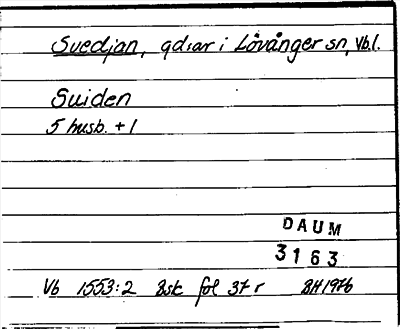 Svedjan, gdar i Lövånger sn, Vb.l.
Suiden
5 husb. + 1
DAUM
3163
Vb 1553:2 Bsk fol 37 r BH 1976